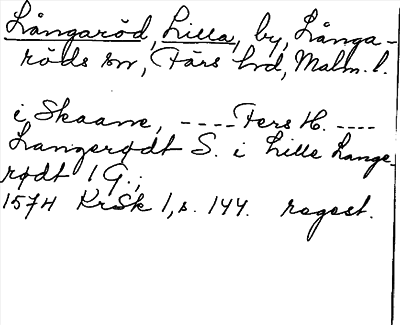 Långaröd, Lilla, by, Långa-
röds sn, Färs hd, Malm. l.
i Skaane, ---- Fers H. ----
Langerødt S. i Lille Lange-
rødt 1 G.;
1574 KrSk 1, s. 144. regest.